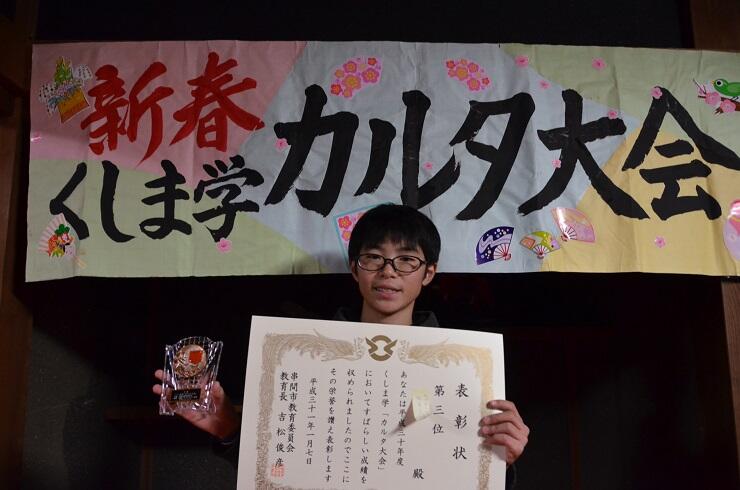 新春
くしま学
カルタ大会
表彰状
第三位
殿
あなたは平成三十年度
くしま学「カルタ大会」
においてすばらしい成績を
収められましたのでここに
その栄誉を讃え表彰します
平成三十一年一月七日
串間市教育委員会
教育長 吉松俊彦